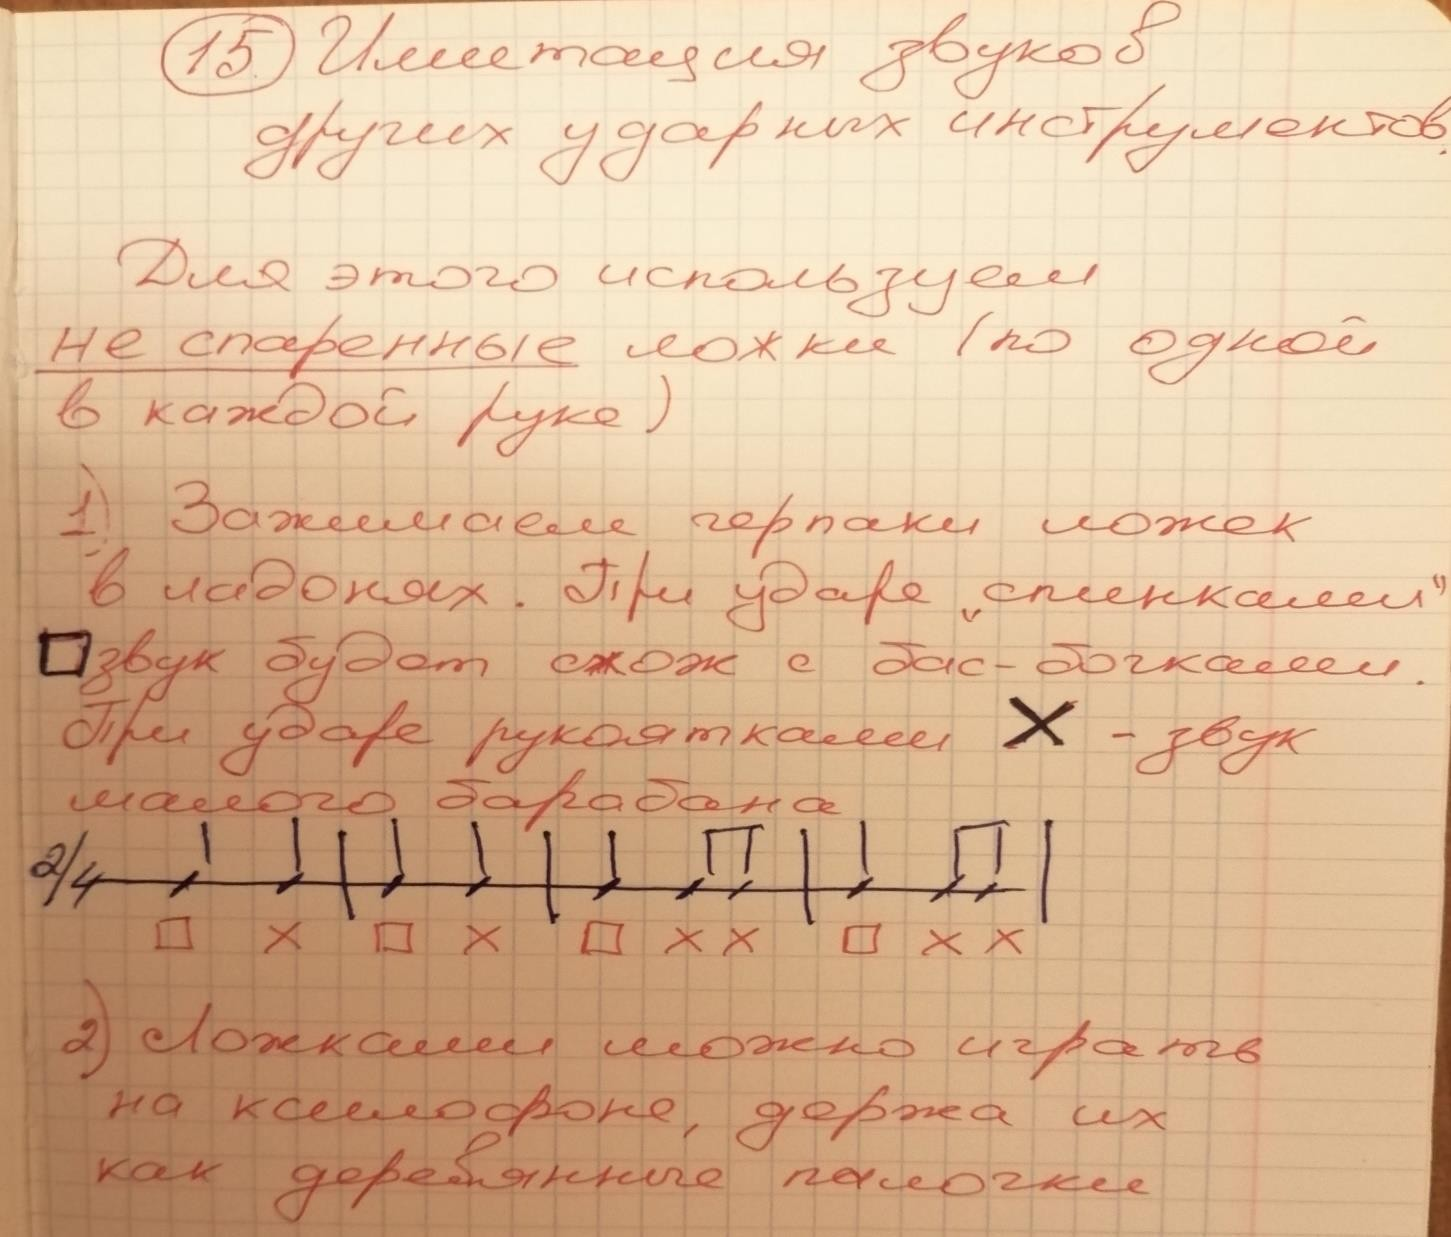 15. Имитация звуков
других ударных инструментов.
Для этого используем
не спаренные ложки (по одной
в каждой руке)
1) Зажимаем черпаки ложек
в ладонях. При ударе „спинками"
□ звук будет схож с бас-бочками.
При ударе рукоятками X - звук
малого барабана
2/4
□ X □ X □ X X □ X X
2) Ложками можно играть
на ксилофоне, держа их
как деревянные палочки